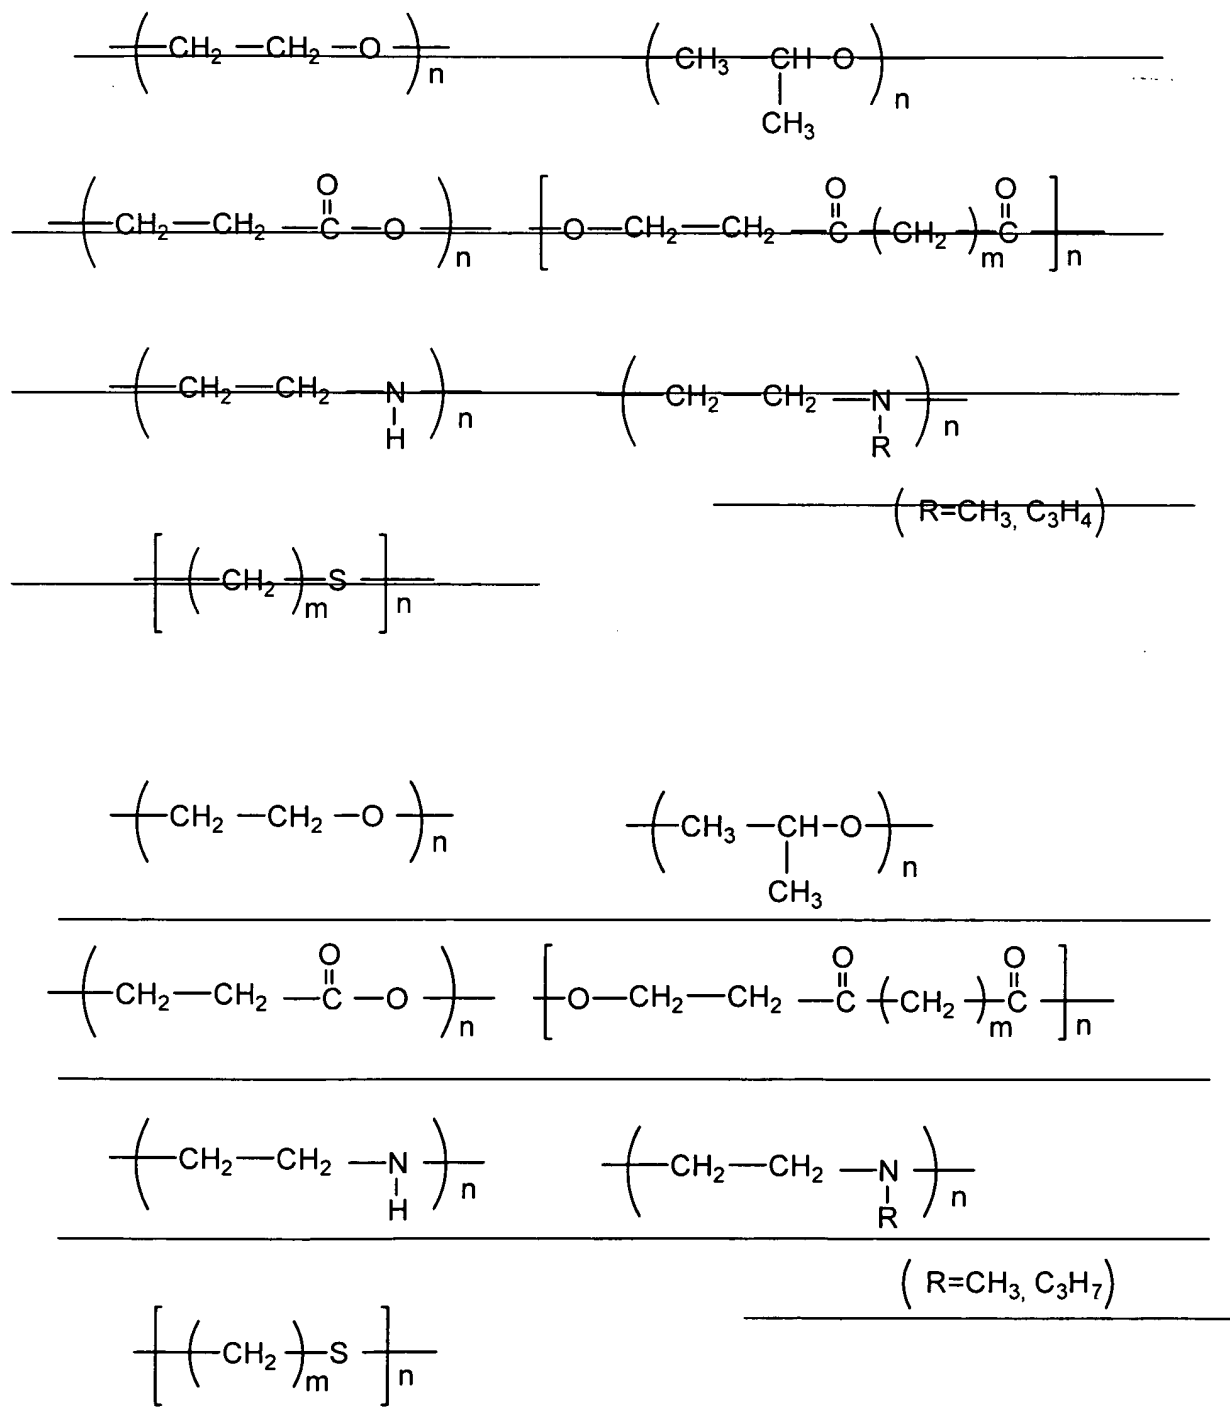 (CH₂—CH₂—O)n (CH₃—CH—O)n
CH₃
O O O
(CH₂—CH₂—C—O)n [O—CH₂—CH₂—C(CH₂)mC]n
(CH₂—CH₂—N)n (CH₂—CH₂—N)n
H R
(R=CH₃, C₃H₄)
[(CH₂)mS]n
(CH₂—CH₂—O)n (CH₃—CH—O)n
CH₃
O O O
(CH₂—CH₂—C—O)n [O—CH₂—CH₂—C(CH₂)mC]n
(CH₂—CH₂—N)n (CH₂—CH₂—N)n
H R
(R=CH₃, C₃H₇)
[(CH₂)mS]n